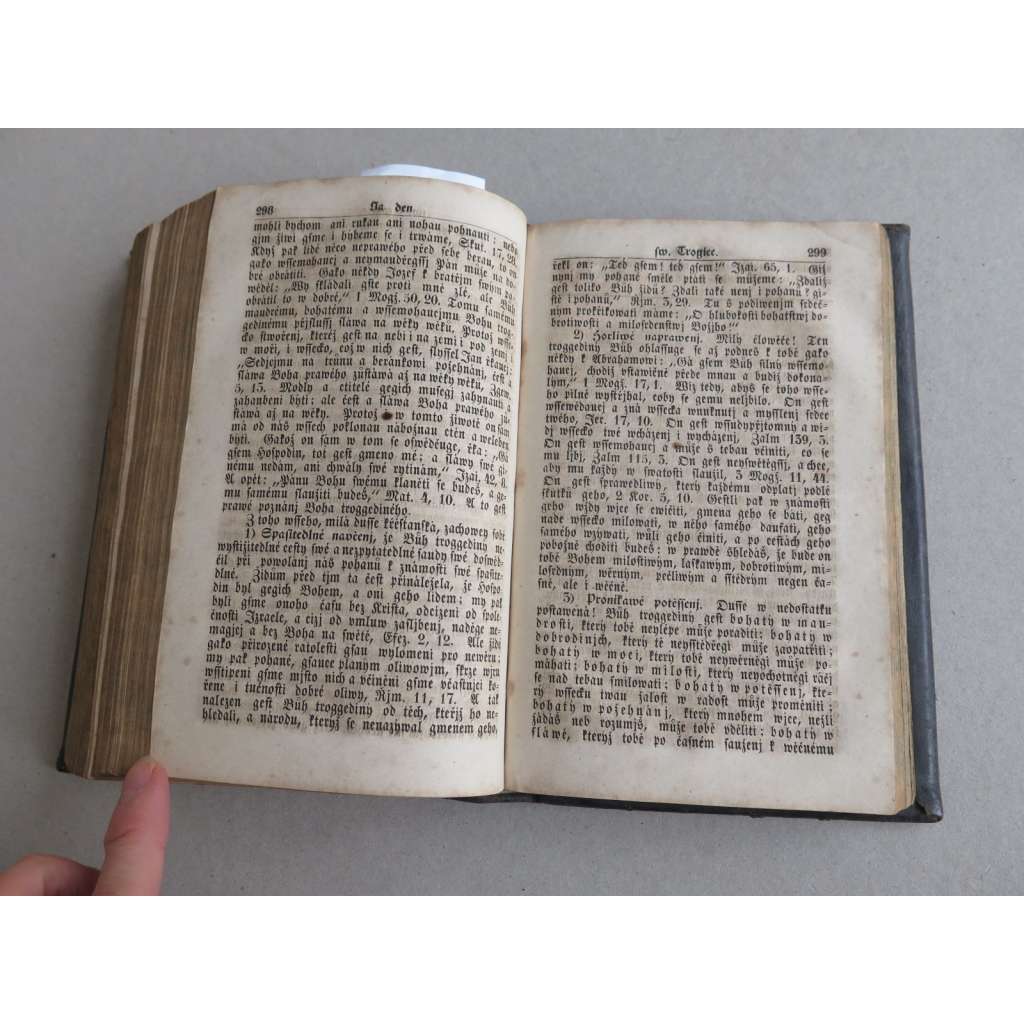 298 Na den
mohli bychom ani rukau ani nohau pohnauti; neb w
gjm žiwi gsme i hybeme se i trwáme, Skut. 17, 28.
Když pak lidé něco neprawého před sebe berau, to on
gako wssemohaucý a neymaudřegssj Pán může na do-
bré obrátiti. Gako někdy Jozef k bratřjm swým po-
wěděl: „Wy skládali gste proti mně zlé, ale Bůh
obrátil to w dobré,“ 1 Mogž. 50, 20. Tomu samému
maudrému, bohatému a wssemohaucjmu Bohu trog-
gedinému přjslussj sláwa na wěky wěků, Protož wsse-
cko stwořenj, kteréž gest na nebi i na zemi i pod zemj i
w moři, i wssecko, což w nich gest, slyssel Jan řkaucý:
„Sedjcjmu na trůnu a beránkowi požehnánj, čest a
sláwa Boha prawého zůstáwá až na wěky wěků, Zgew.
5, 13. Modly a ctitelé gegich musegj zahynauti a
zahanbeni býti: ale čest a sláwa Boha prawého zů-
stáwá až na wěky. Protož w tomto žiwotě on sám
má od nás wssech poklonau nábožnau ctěn a weleben
býti. Gakož on sám w tom se oswědčuge, řka: „Gá
gsem Hospodin, tot gest gmeno mé; a sláwy swé gi-
nému nedám, ani chwály swé rytinám,“ Izai. 42, 8.
A opět: „Pánu Bohu swému klaněti se budeš, a ge-
mu samému slaužiti budeš,“ Mat. 4, 10. A to gest
prawé poznánj Boha troggediného.
Z toho wsseho, milá dusse křesťanská, zachowey sobě
1) Spasitedlné naučenj, že Bůh troggediny ne-
wystižitedlné cesty swé a nezpytatedlné saudy swé doswěd-
čil při powolánj nás pohanů k známosti swé spasite-
dlné. Židům před tjm ta čest přináležela, že Hospo-
din byl gegich Bohem, a oni geho lidem; my pak
byli gsme onoho času bez Krista, odcizeni od spole-
čnosti Izraele, a cizj od umluw zaslibenj, naděge ne-
magjce a bez Boha na swětě, Efez. 2, 12. Ale židé
gako přirozené ratolesti gsau wylomeni pro newěru;
my pak pohané, gsauce planým oliwowjm, skrze wjru
wsstipeni gsme mjsto nich a včiněni gsme včastnjci ko-
řene i tučnosti dobré oliwy, Rjm. 11, 17. A tak
nalezen gest Bůh troggediny od těch, kteřjž ho ne-
hledali, a národu, kteryž se nenazýwal gmenem geho,
sw. Trogice. 299
řekl on: „Teď gsem! teď gsem!“ Izai. 65, 1. Giž
nynj my pohané směle ptáti se můžeme: „Zdaliž
gest toliko Bůh židů? Zdali také nenj i pohanů? gi-
stě i pohanů,“ Rjm. 3, 29. Tu s podiwenjm srdeč-
nym prokřikowati máme: „O hlubokosti bohatstwj do-
brotiwosti a milosrdenstwj Božjho.“
2) Horliwé naprawenj. Milý člowěče! Ten
troggediny Bůh ohlassuge se až podnes k tobě gako
někdy k Abrahamowi: „Gá gsem Bůh silny wssemo-
haucý, chodiž vstawičně přede mnau a budiž dokona-
lým,“ 1 Mogž. 17, 1. Wiz tedy, abys se toho wsse-
ho pilně wystřjhal, coby se gemu neljbilo. On gest
wssewědaucý a zná wssecka wnuknutj a mysslenj srdce
twého, Jer. 17, 10. On gest wssudypřjtomny a wi-
dj wssecko twé wcházenj i wycházenj, Žalm 139, 3.
On gest wssemohaucý a může s tebau včiniti, co se
mu ljbj, Žalm 115, 3. On gest neyswětěgssj, a chce,
aby mu každy w swatosti slaužil, 3 Mogž. 11, 44.
On gest sprawedliwy, kterýž každému odplatj podlé
skutků geho, 2 Kor. 5, 10. Gestli pak w známosti
geho wždy wjce se cwičiti, gmena geho se báti, geg
nade wssecko milowati, w něho samého daufati, geho
samého wzýwati, wůli geho činiti, a po cestách geho
pobožně choditi budeš: w prawdě shledáš, že bude on
tobě Bohem milostiwým, laskawým, dobrotiwým, mi-
losrdným, wěrným, pečliwým a sstědrým negen ča-
sně, ale i wěčně.
3) Pronikawé potěssenj. Dusse w nedostatku
postawená! Bůh troggediny gest bohaty w mau-
drosti, který tobě neylépe může poraditi; bohaty w
dobrodinjch, který tě neysstědřegi může zaopatřiti;
bohaty w moci, který tobě neywěrněgi může po-
máhati; bohaty w milosti, který neyochotněgi ráčj
se nad tebau smilowati; bohaty w potěssenj, kte-
rý wssecku twau žalost w radost může proměniti;
bohaty w požehnánj, který mnohem wjce, nežli
žádáš neb rozumjš, může tobě vděliti; bohaty w
sláwě, kterýž tobě po časném saužení k wěčnému